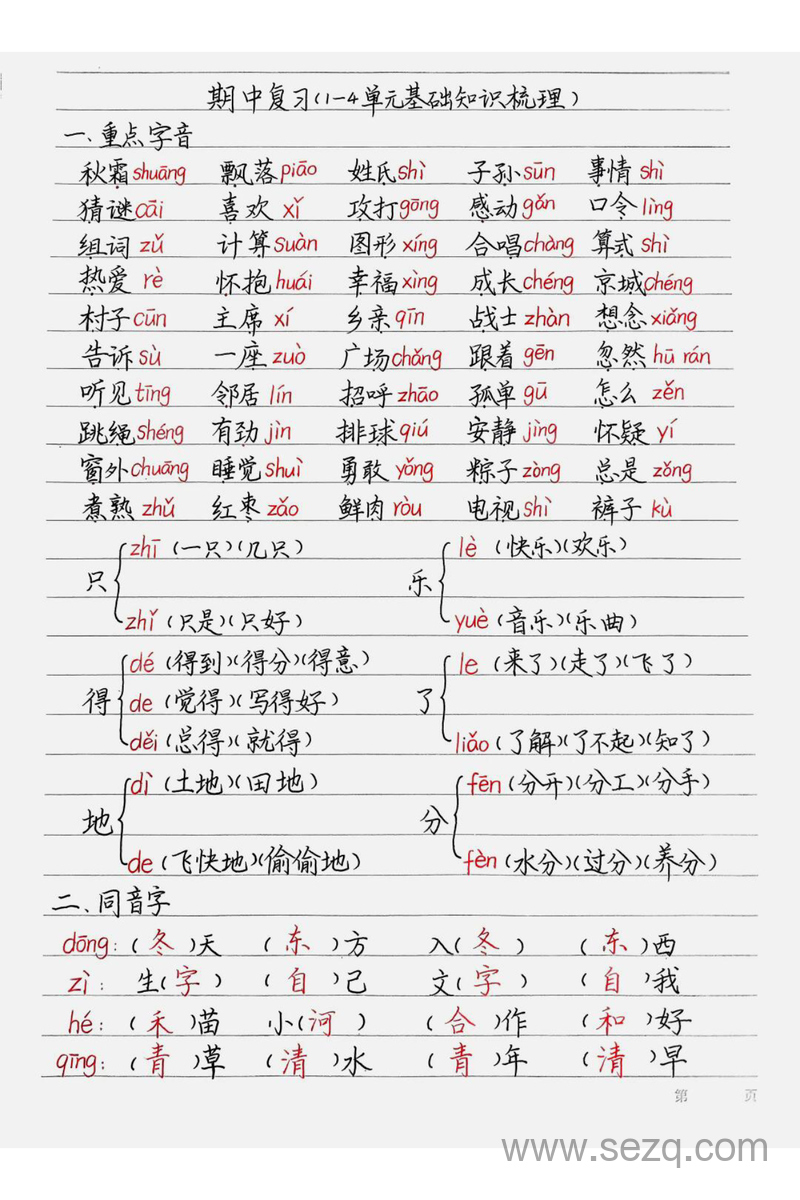 期中复习(1-4单元基础知识梳理)
一、重点字音
秋霜shuāng 飘落piāo 姓氏shì 子孙sūn 事情shì
猜谜cāi 喜欢xǐ 攻打gōng 感动gǎn 口令lìng
组词zǔ 计算suàn 图形xíng 合唱chàng 算式shì
热爱rè 怀抱huái 幸福xìng 成长chéng 京城chéng
村子cūn 主席xí 乡亲qīn 战士zhàn 想念xiǎng
告诉sù 一座zuò 广场chǎng 跟着gēn 忽然hū rán
听见tīng 邻居lín 招呼zhāo 孤单gū 怎么zěn
跳绳shéng 有劲jìn 排球qiú 安静jìng 怀疑yí
窗外chuāng 睡觉shuì 勇敢yǒng 粽子zòng 总是zǒng
煮熟zhǔ 红枣zǎo 鲜肉ròu 电视shì 裤子kù
zhī(一只)(几只) lè(快乐)(欢乐)
只 乐
zhǐ(只是)(只好) yuè(音乐)(乐曲)
dé(得到)(得分)(得意) le(来了)(走了)(飞了)
得 de(觉得)(写得好) 了
děi(总得)(就得) liǎo(了解)(了不起)(知了)
dì(土地)(田地) fēn(分开)(分工)(分手)
地 分
de(飞快地)(偷偷地) fèn(水分)(过分)(养分)
二、同音字
dōng:(冬)天 (东)方 入(冬) (东)西
zì:生(字) (自)己 文(字) (自)我
hé:(禾)苗 小(河) (合)作 (和)好
qīng:(青)草 (清)水 (青)年 (清)早
第 页
www.sezq.com